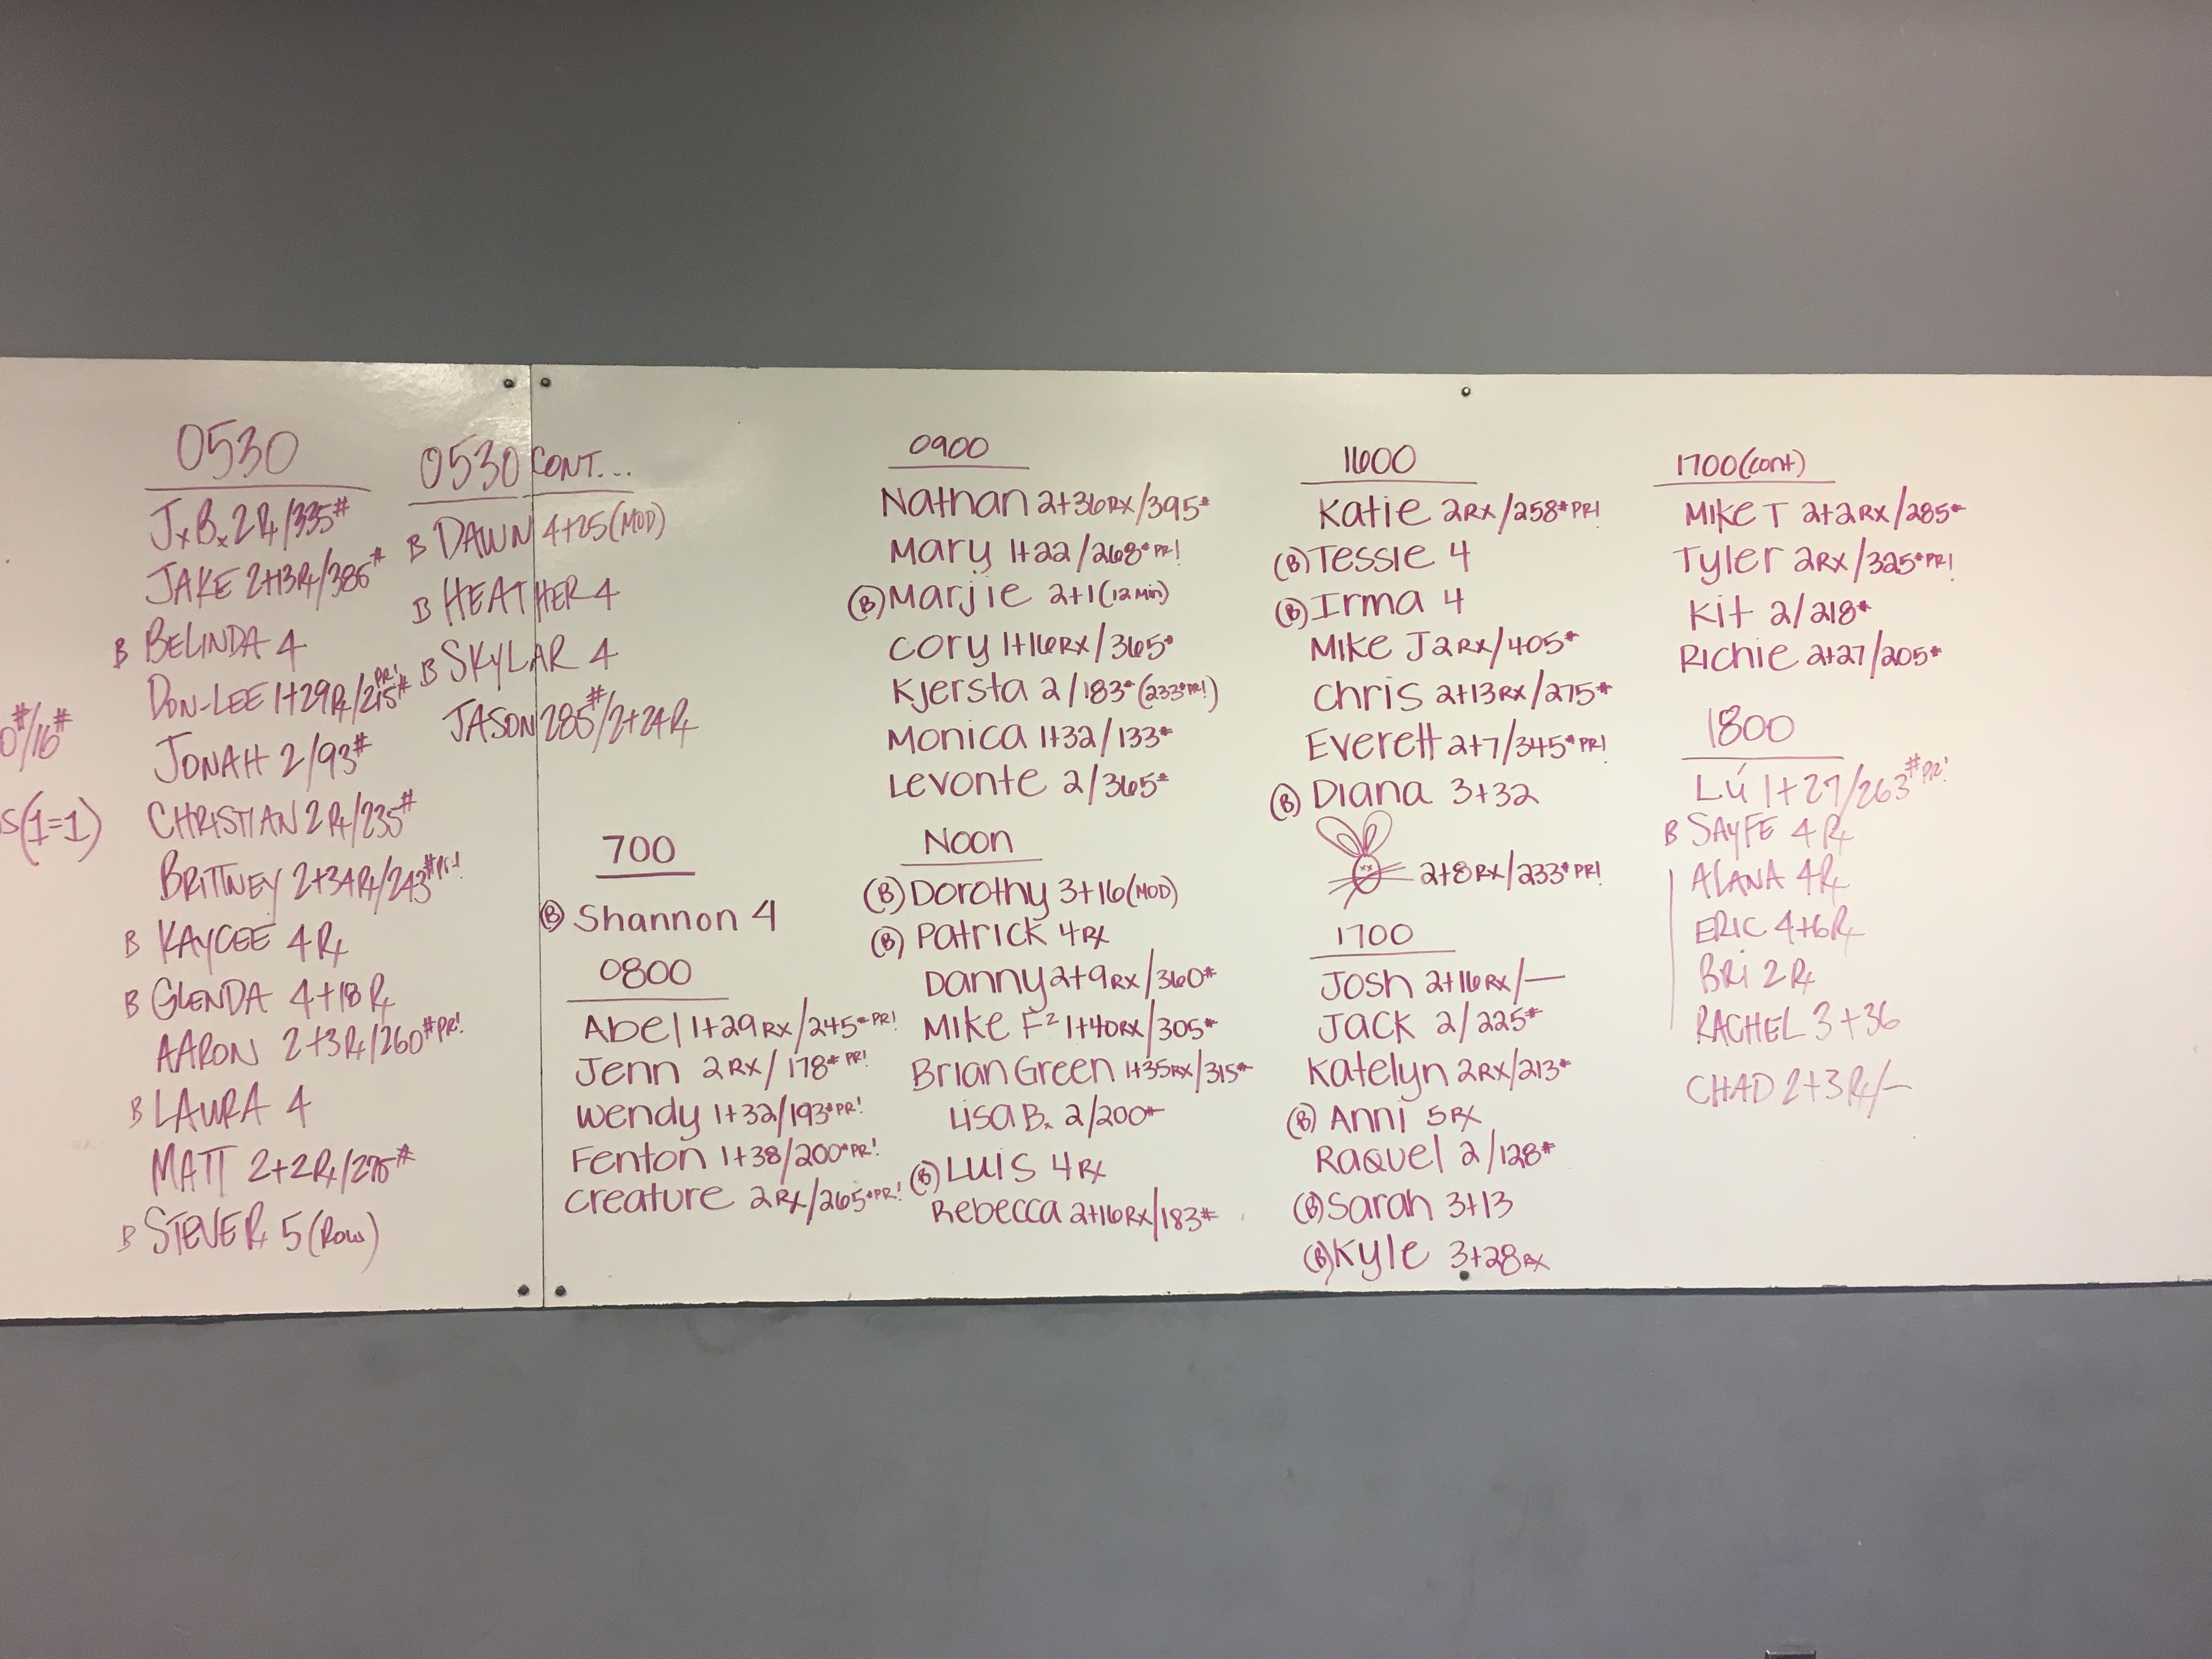 0#/16#
S(1=1)
0530
J.B. 2Rx/335#
JAKE 2+13Rx/386#
B BELINDA 4
DON-LEE 1+29Rx/215# PR!
JONAH 2/93#
CHRISTIAN 2Rx/235#
BRITTNEY 2+34Rx/243# PR!
B KAYCEE 4Rx
B GLENDA 4+18Rx
AARON 2+3Rx/260# PR!
B LAURA 4
MATT 2+2Rx/275#
B STEVER 5 (ROW)
0530 CONT...
B DAWN 4+25 (MOD)
B HEATHER 4
B SKYLAR 4
JASON 285#/2+24Rx
700
(B) Shannon 4
0800
Abel 1+29RX/245# PR!
Jenn 2RX/178# PR!
Wendy 1+32/193# PR!
Fenton 1+38/200# PR!
Creature 2RX/265# PR!
0900
Nathan 2+36RX/395#
Mary 1+22/268# PR!
(B) Marjie 2+1 (12 Min)
Cory 1+16RX/365#
Kjersta 2/183# (233# PR!)
Monica 1+32/133#
Levonte 2/365#
Noon
(B) Dorothy 3+16 (MOD)
(B) Patrick 4RX
Danny 2+9RX/360#
Mike F² 1+40RX/305#
Brian Green 1+35RX/315#
Lisa B. 2/200#
(B) Luis 4RX
Rebecca 2+16RX/183#
1600
Katie 2RX/258# PR!
(B) Tessie 4
(B) Irma 4
Mike J 2RX/405#
Chris 2+13RX/275#
Everett 2+7/345# PR!
(B) Diana 3+32
2+8RX/233# PR!
1700
Josh 2+16RX/—
Jack 2/225#
Katelyn 2RX/213#
(B) Anni 5RX
Raquel 2/128#
(B) Sarah 3+13
(B) Kyle 3+28RX
1700 (cont)
Mike T 2+2RX/285#
Tyler 2RX/325# PR!
Kit 2/218#
Richie 2+27/205#
1800
LÚ 1+27/263# PR!
B SAYFE 4Rx
ALANA 4Rx
ERIC 4+6Rx
BRI 2Rx
RACHEL 3+36
CHAD 2+3Rx/—